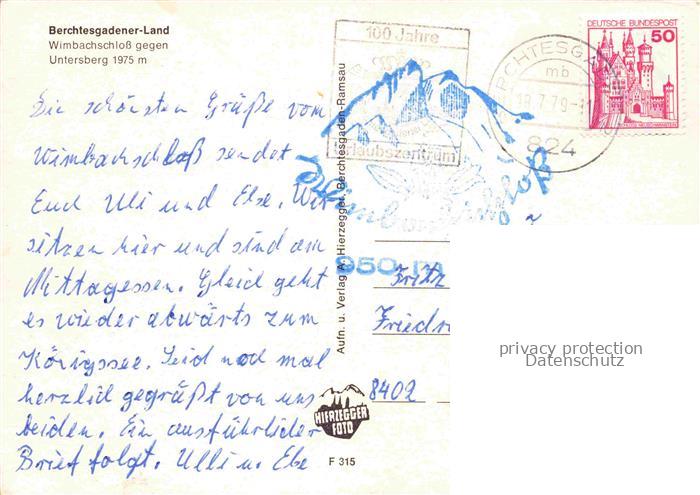 Berchtesgadener-Land
Wimbachschloß gegen
Untersberg 1975 m
Die schönsten Grüße vom
Wimbachschloß sendet
Euch Uli und Else. Wir
sitzen hier und sind am
Mittagessen. Gleich geht
es wieder abwärts zum
Königssee. Seid noch mal
herzlich gegrüßt von uns
beiden. Ein ausführlicher
Brief folgt. Ulli u. Else
Aufn. u. Verlag A. Hierzegger, Berchtesgaden-Ramsau
HIERZEGGER
FOTO
F 315
100 Jahre
Urlaubszentrum
Wimbachschloß
950
RCHTESGA
mb
18.7.79
824
DEUTSCHE BUNDESPOST
50
Fritz
Friedr
8402
privacy protection
Datenschutz